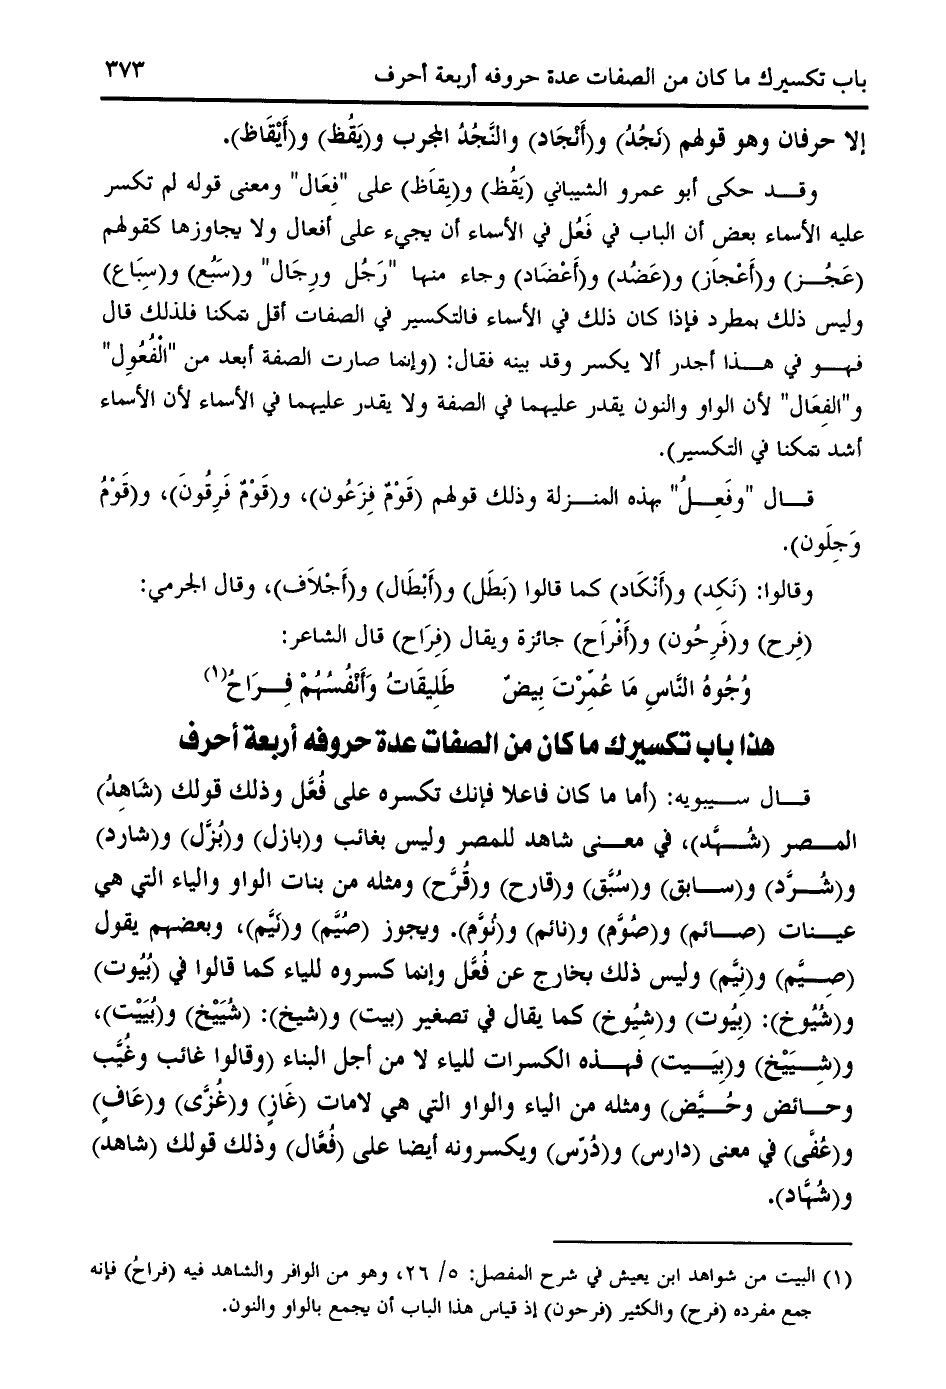 باب تكسيرك ما كان من الصفات عدة حروفه أربعة أحرف ٣٧٣
إلا حرفان وهو قولهم (نَجُدُ) و(أَنْجَاد) والنَّجُدُ المجرب و(يَقُظ) و(أَيْقَاظ).
وقـد حكى أبو عمرو الشيباني (يَقُظ) و(يِقاَظ) على "فِعَال" ومعنى قوله لم تكسر
عليه الأسماء بعض أن الباب في فَعُل في الأسماء أن يجيء على أفعال ولا يجاوزها كقولهم
(عَجُـز) و(أَعْجاَز) و(عَضُد) و(أَعْضَاد) وجاء منها "رَجُل ورِجَال" و(سَبُع) و(سِبَاع)
وليس ذلك بمطرد فإذا كان ذلك في الأسماء فالتكسير في الصفات أقل تمكنا فلذلك قال
فهـو في هـذا أجدر ألا يكسر وقد بينه فقال: (وإنما صارت الصفة أبعد من "الْفُعُول"
و"الفِعَال" لأن الواو والنون يقدر عليهما في الصفة ولا يقدر عليهما في الأسماء لأن الأسماء
أشد تمكنا في التكسير).
قـال "وفَعِـلُ" بهذه المنـزلة وذلك قولهم (قَوْمٌ فِزَعُون)، و(قَوْمٌ فَرِقُونَ)، و(قَوْمُ
وَجِلَون).
وقالوا: (نَكِد) و(أَنْكَاد) كما قالوا (بَطَل) و(أَبْطَال) و(أَجْلاَف)، وقال الجرمي:
(فِرح) و(فَرِحُون) و(أَفْراَح) جائزة ويقال (فِرَاح) قال الشاعر:
وُجُوهُ النَّاسِ مَا عُمّرْتَ بِيضٌ طَلِيقَاتُ وَأَنْفُسُهُمْ فِـرَاحُ(١)
هذا باب تكسيرك ما كان من الصفات عدة حروفه أربعة أحرف
قـال سيبويه: (أما ما كان فاعلا فإنك تكسره على فُعَّل وذلك قولك (شَاهِدُ)
المـصر (شُـهَّد)، في معـنى شاهد للمصر وليس بغائب و(بازل) و(بُزَّل) و(شارد)
و(شُـرَّد) و(سـابق) و(سُبَّق) و(قارح) و(قُرَّح) ومثله من بنات الواو والياء التي هي
عيـنات (صـائم) و(صُوَّم) و(نائم) و(نُوَّم). ويجوز (صُيَّم) و(نَيَّم)، وبعضهم يقول
(صِـيَّم) و(نِيَّم) وليس ذلك بخارج عن فُعَّل وإنما كسروه للياء كما قالوا في (بُيُوت)
و(شُيُوخ): (بِيُوت) و(شِيُوخ) كما يقال في تصغير (بيت) و(شيخ): (شُيَيْخ) و(بُيَيْت)،
و(شِـيَيْخ) و(بِيَـيت) فهـذه الكسرات للياء لا من أجل البناء (وقالوا غائب وغُيَّب
وحـائض وحُـيَّض) ومثله من الياء والواو التي هي لامات (غَازٍ) و(غُزَّى) و(عَافٍ)
و(عُفَّى) في معنى (دارس) و(دُرّس) ويكسرونه أيضا على (فُعَّال) وذلك قولك (شاهد)
و(شُهَّاد).
(١) البيت من شواهد ابن يعيش في شرح المفصل: ٥/ ٢٦، وهو من الوافر والشاهد فيه (فراحُ) فإنه
جمع مفرده (فرح) والكثير (فرحون) إذ قياس هذا الباب أن يجمع بالواو والنون.